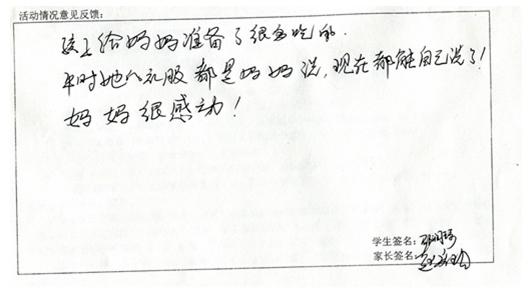 活动情况意见反馈:
晚上给妈妈准备了很多吃的.
平时她的衣服都是妈妈洗,现在都能自己洗了!
妈妈很感动!
学生签名:
家长签名: